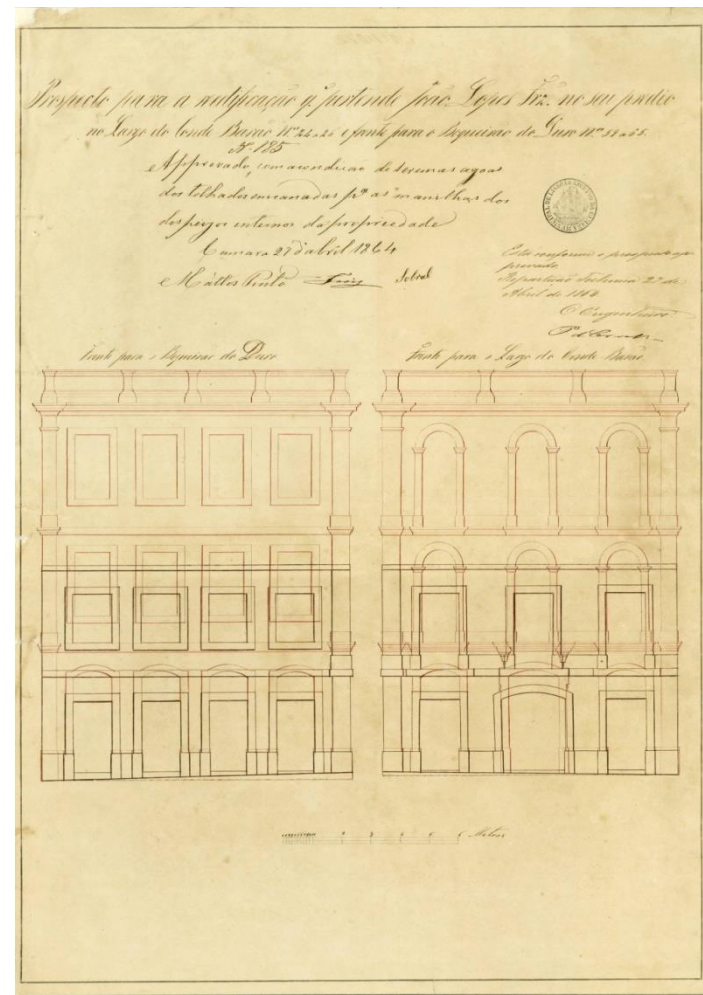 Prospecto para a reedificação q. pertende João Lopes Frz. no seu predio
no Largo do Conde Barão Nos 24 a 26 e frante para o Boqueirão do Duro Nos 52 a 58.
Nº 185
Approvado, com a condicão de serem as agoas
dos telhados encanadas pª as manilhas dos
despejos internos da propriedade
Camara 27 d'abril 1864
Mattos Pinto Sobral
Está conforme o prospecto ap
provado.
Repartição Technica 2 de
Abril de 1864
O Engenheiro
Frante para o Boqueirão do Duro
Frante para o Lago do Conde Barão
Metros